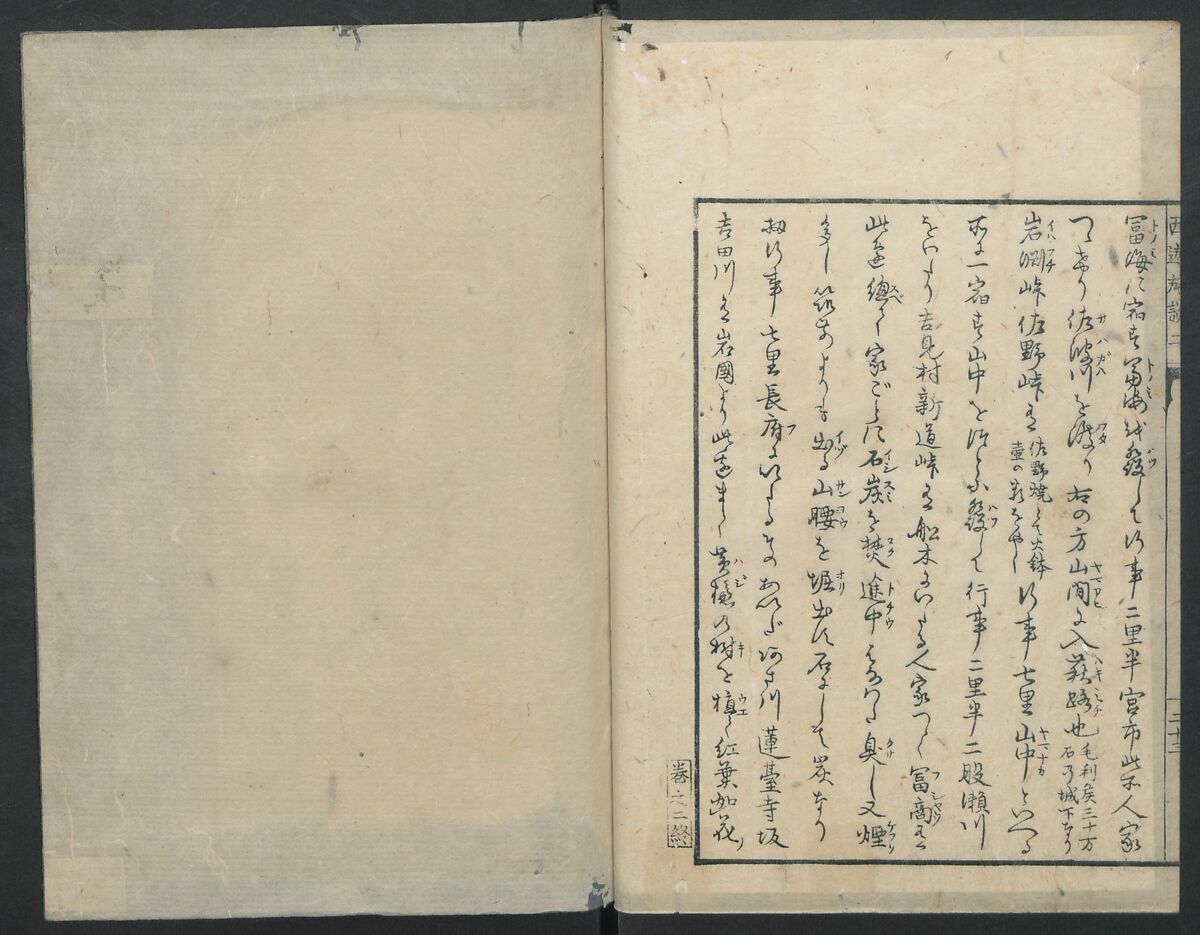 西遊旅譚二 二十三
冨海に宿す冨海を發して行事二里半宮市此所人家
つゞけり佐波川を渡り右の方山間に入萩路也毛利矦三十万石の城下なり
岩淵峠佐野峠有佐野焼とて火鉢壷の類をやく行事七里山中といへる
所に一宿す山中を發して行事二里半二股瀬川
をいたり吉見村新道峠有船木にいたる人家つゞく冨商有
此邊總て家ごとに石炭を焚途中臭し又煙
多し筑前よりも出る山腰を堀出す石にして炭なり
行事七里長府にいたる其あいだ川蓮臺寺坂
吉田川有岩國より此邊まで黄櫨の樹を植て紅葉如花
巻之二終